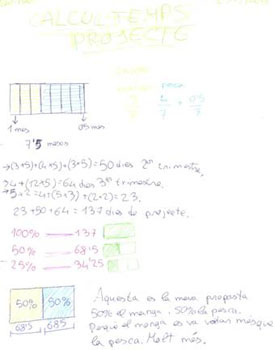 CALCUL TEMPS
PROJECTE
pesca
1 mes 0'5 mes
7'5 mesos
→(3+5)+(4+5)+(3+5)=50 dies 2n trimestre,
→4+(12+5)=64 dies 3r trimestre.
23+50+64=137 dies de projecte.
100% — 137
50% — 68'5
25% — 34'25
50% 50%
68'5 68'5
Aquesta es la meva proposta
50% el manga, 50% la pesca.
Perque el manga es va votar mes que
la pesca. Molt mes.